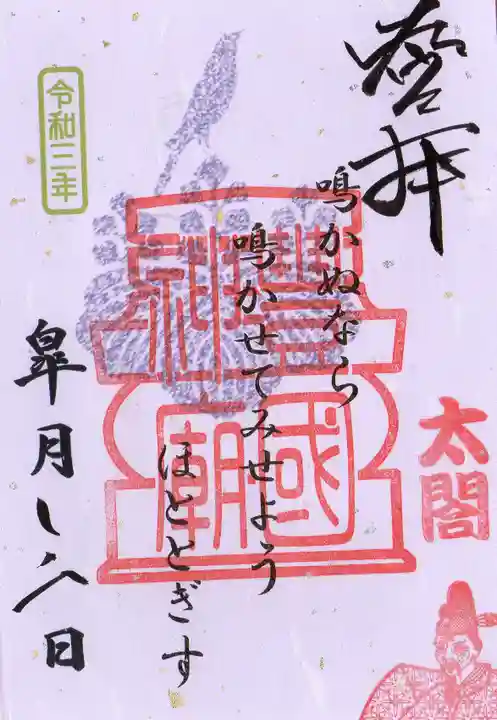 登拝
鳴かぬなら
鳴かせてみせよう
ほととぎす
令和三年
皐月
日
太閤